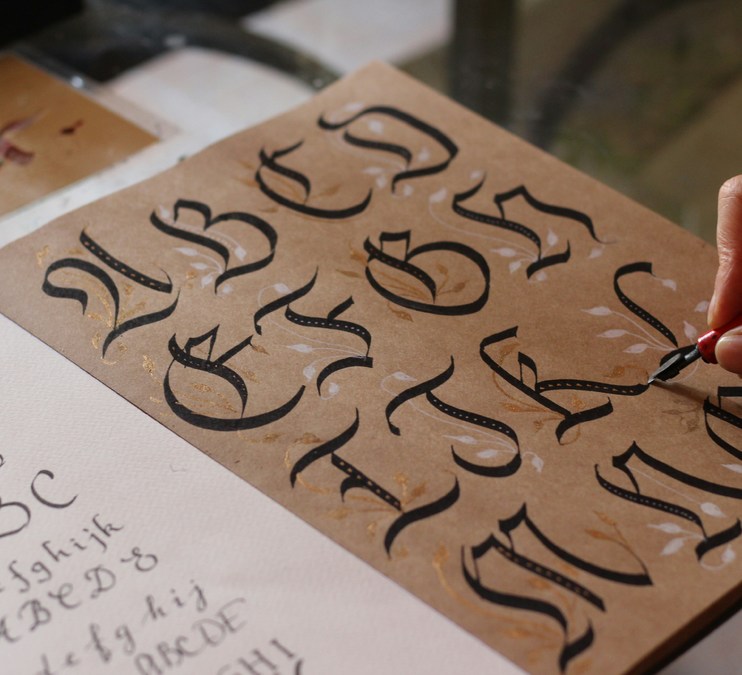 A B C D
E F G H
I J K L
M N
BC
fghijk
ABCDE
efghij
ABCDE
GHI